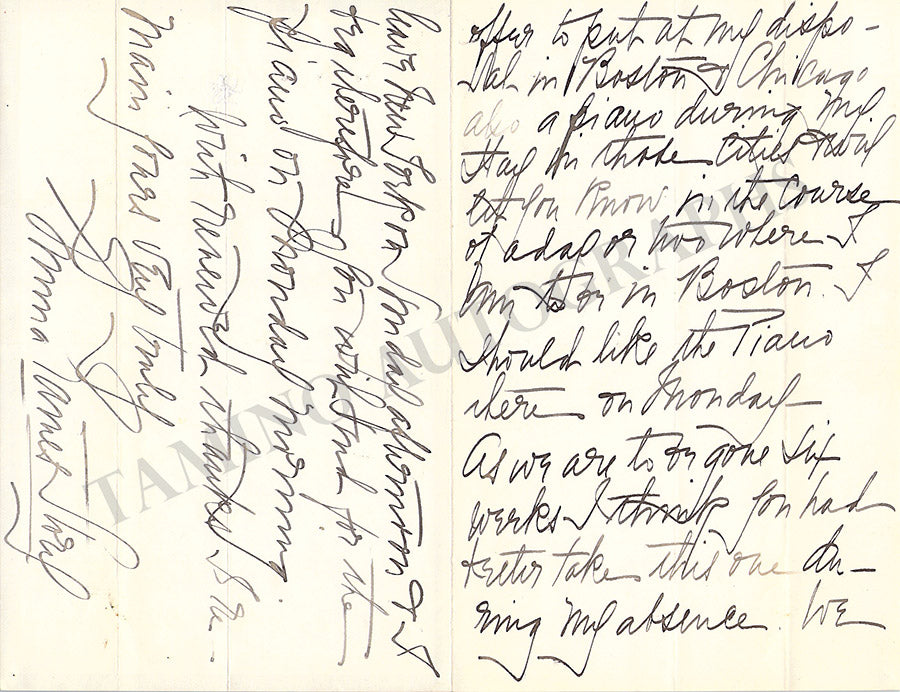 offer to put at my dispo-
sal in Boston & Chicago
also a piano during my
stay in those cities & will
let you know in the course
of a day or two where I
am to be in Boston. I
should like the Piano
there on Monday-
As we are to be gone six
weeks I think you had
better take this one du-
ring my absence. We
leave New York on Sunday afternoon & I
you will send for the
piano on Monday morning.
With renewed thanks I re-
main yours very truly
Emma Eames Story
TAMINO AUTOGRAPHS